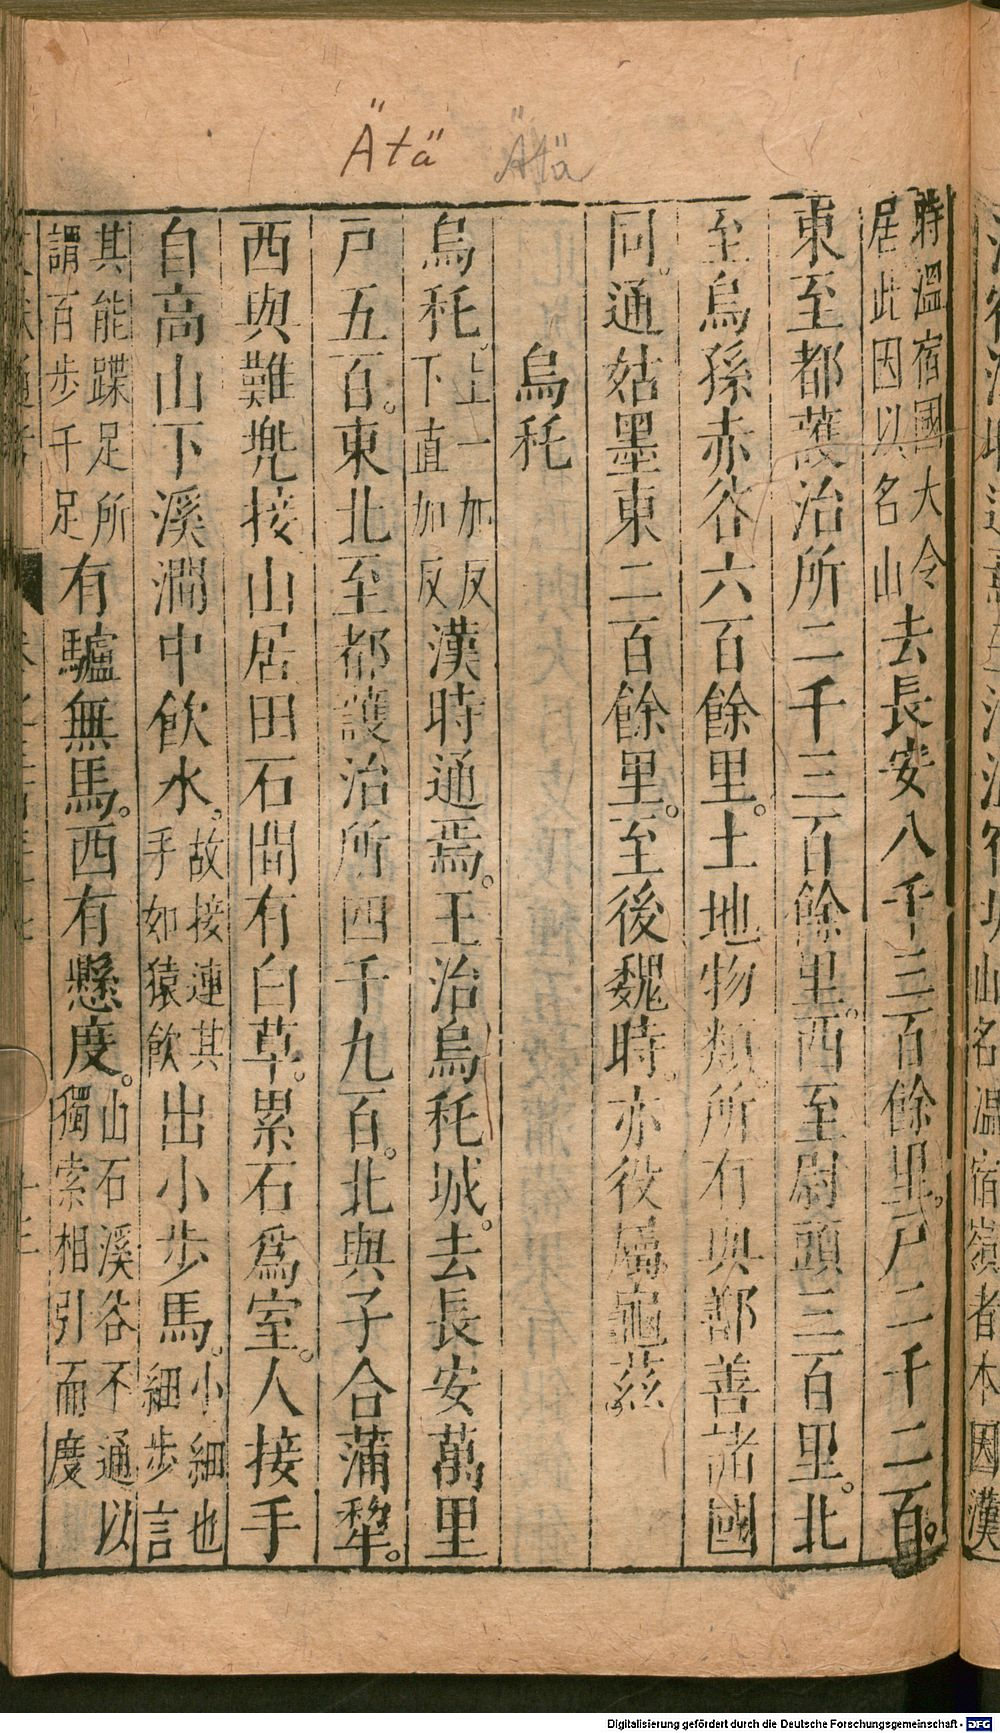 Ätä Ätä
時溫宿國大令
居此因以名山去長安八千三百餘里。戶二千二百。
東至都護治所二千三百餘里。西至尉頭三百里。北
至烏孫赤谷六百餘里。土地物類。所有與鄯善諸國
同。通姑墨東二百餘里。至後魏時。亦役屬龜茲。
烏秅
烏秅。上一加反
下直加反漢時通焉。王治烏秅城。去長安萬里
戶五百。東北至都護治所四千九百。北與子合蒲犂。
西與難兜接山居田石間有白草。累石爲室。人接手
自高山下溪澗中飲水。故接連其
手如猿飲出小步馬。小細也
細步言
其能蹀足所
謂百步千足有驢無馬。西有懸度。山石溪谷不通以
獨索相引而度
Digitalisierung gefördert durch die Deutsche Forschungsgemeinschaft - DFG